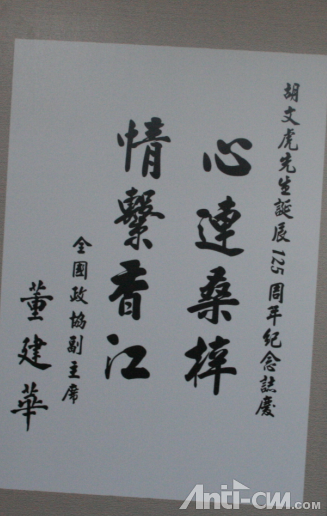 胡文虎先生誕辰125周年紀念誌慶
心連桑梓
情繫香江
全國政協副主席
董建華
Anti-CM.com